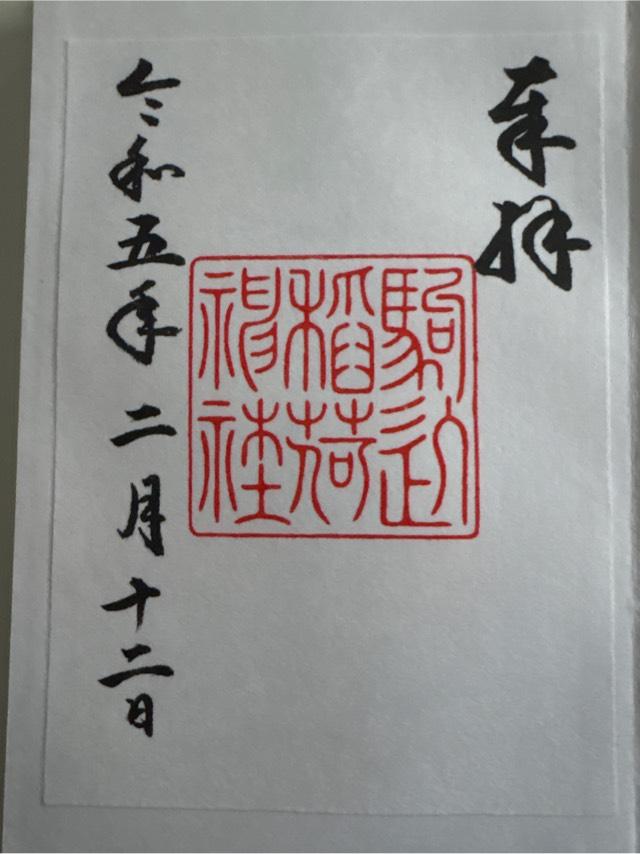 奉拝
駒込
稲荷
神社
令和五年二月十二日